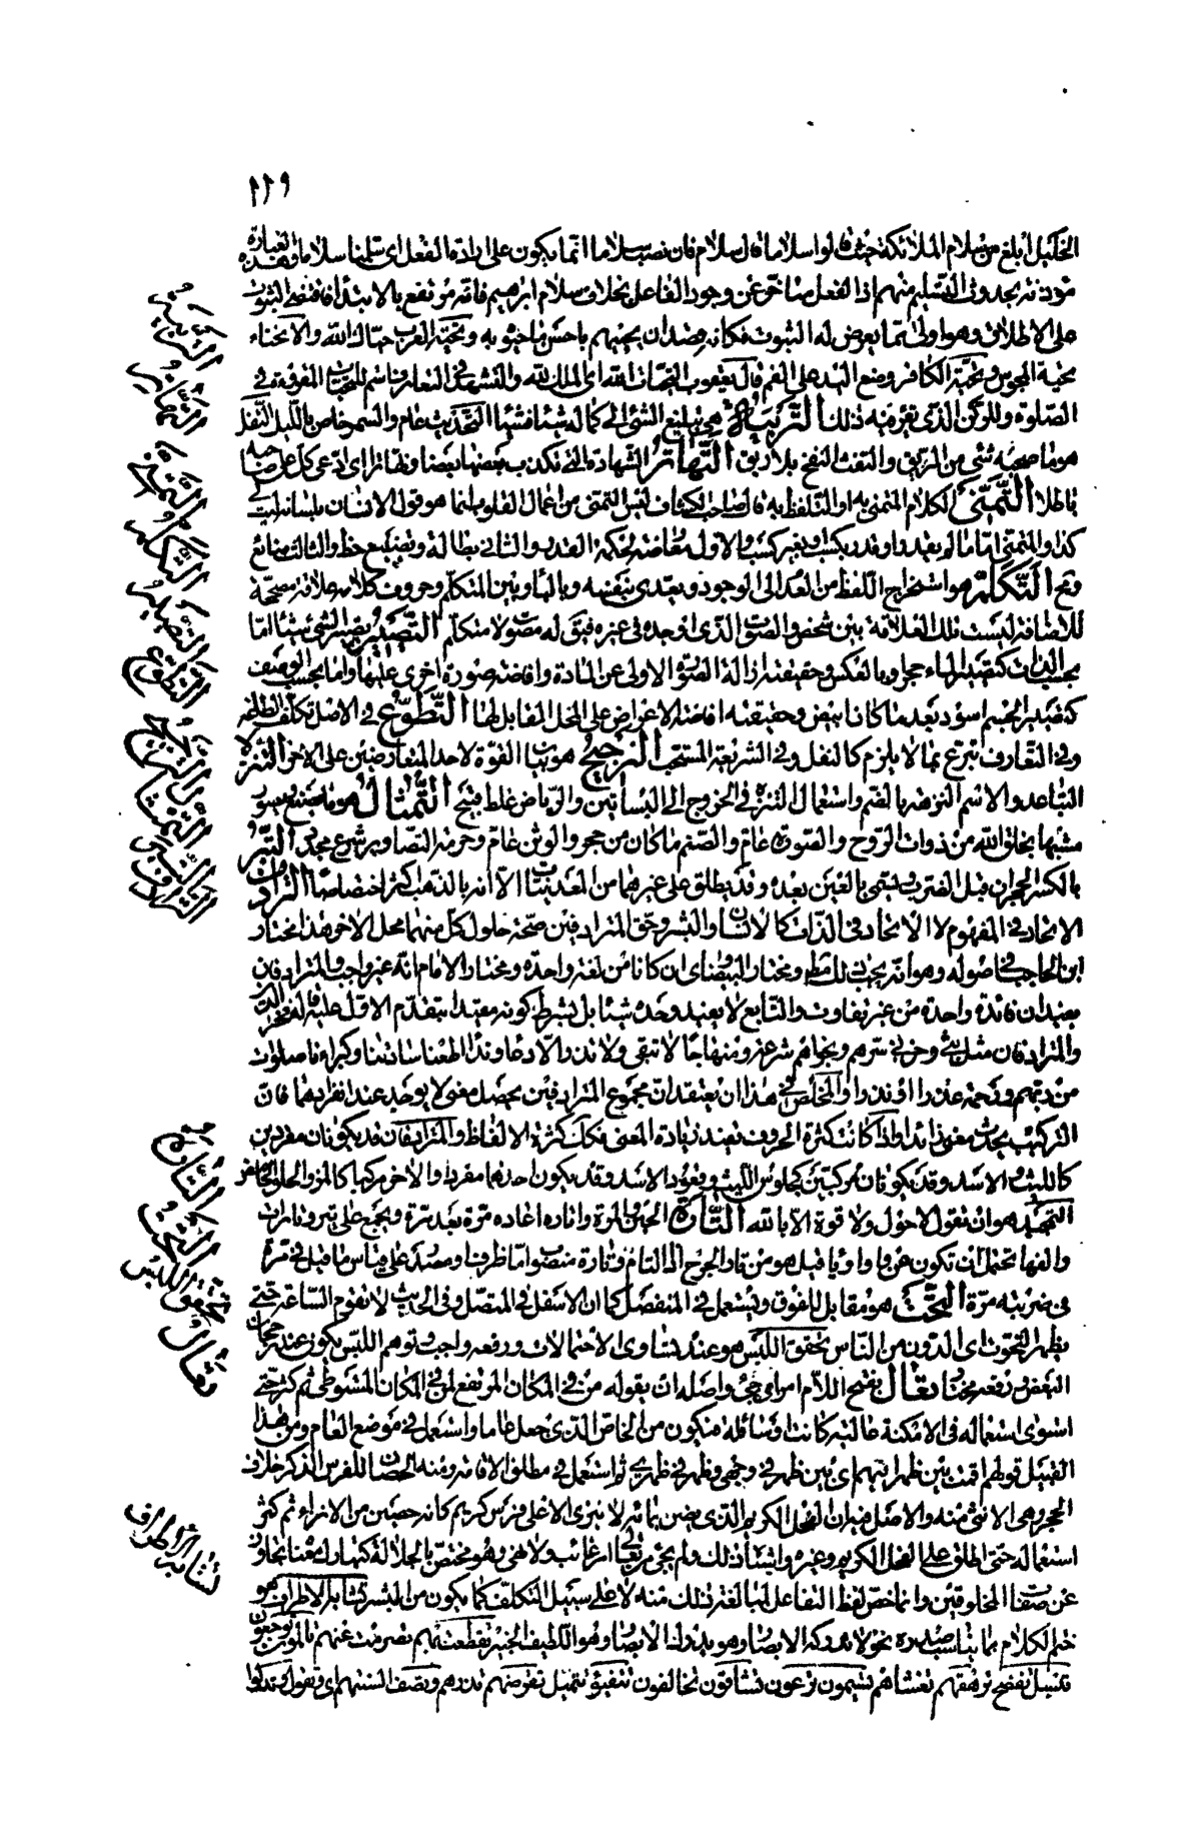 ١١٩
الخليل ابلغ من سلام الملائكة حيث قالوا سلاما قال سلام فان نصب سلاما انما يكون على ارادة الفعل اى سلمنا سلاما وهذه العبارة
مؤذنة بحدوث التسليم منهم اذ الفعل متأخر عن وجود الفاعل بخلاف سلام ابراهيم فانه مرتفع بالابتداء فاقتضى الثبوت
على الاطلاق وهو اولى مما يعرض له الثبوت فكانه قصد ان يحييهم باحسن ما حيوه به وتحية العرب حياك الله والانحناء
تحية المجوس وتحية الكافر وضع اليد على الفم قال يعقوب التحيات لله اى الملك لله والتشهد فى التعارف اسم للتحيات المقروءة فى
الصلوة وللركن الذى يقرء فيه ذلك التربية هى تبليغ الشئ الى كماله شيئا فشيئا التحديث عام والسمر خاص بالليل التفل
هو ما صحبه شئ من الريق والنفث النفخ بلا ريق التهاتر الشهادة التى تكذب بعضها بعضا وتهاترا اى ادعى كل على صاحبه
باطلا التمنى الكلام المتمنى به او التلفظ به قال صاحب الكشاف ليس التمنى من اعمال القلوب انما هو قول الانسان بلسانه ليت لى
كذا والمتمنى اما ما لم يقدر او قدر بكسب او بغير كسب والاول معارضة لحكمة القدر والثانى بطالة وتضييع حظ والثالث ضائع
وقح التكلم هو استخراج اللفظ من العدم الى الوجود ويعدى بنفسه وبالباء وبين المتكلم وحروف كلامه علاقة مصححة
للاضافة ليست تلك العلاقة بين شخص والصوت الذى اوجده فى غيره فبقى له مصوتا لا متكلم التصيير تصيير الشئ شيئا اما
بحسب الذات كتصيير الماء حجرا وبالعكس وحقيقته ازالة الصورة الاولى عن المادة وافاضة صورة اخرى عليها واما بحسب الوصف
كتصيير الجسم اسود بعد ما كان ابيض وحقيقته افاضة الاعراض على المحل القابل لها التطوع فى الاصل تكلف الطاعة
وفى التعارف تبرع بما لا يلزم كالنفل وفى الشريعة المستحب الترجيح هو بيان القوة لاحد المتعارضين على الاخر التنزه
التباعد والاسم النزهة بالضم واستعمال التنزه فى الخروج الى البساتين والرياض غلط قبيح التمثال هو ما يصنع ويصور
مشبها بخلق الله من ذوات الروح والصورة عام والصنم ما كان من حجر والوثن عام وحرمة التصاوير شرع مجدد التبر
بالكسر الحجران قبل الضرب ويسمى بالعين بعده وقد يطلق على غيرهما من المعدنيات الا انه بالذهب اكثر اختصاصا الترادف
الاتحاد فى المفهوم لا الاتحاد فى الذات كالانسان والبشر وحق المترادفين صحة حلول كل منهما محل الاخر هذا مختار
ابن الحاجب فى اصوله وهو انه يجب ذلك مطلقا ومختار البيضاوى ان كانا من لغة واحدة ومختار الامام انه غير واجب والمترادفان
يفيدان فائدة واحدة من غير تفاوت والتابع لا يفيد وحده شيئا بل بشرط كونه مفيدا بتقدم الاول عليه قاله فخر الدين
والمترادفان مثل بثى وحزنى سرهم ونجواهم شرعة ومنهاجا لا تبقى ولا تذر الا دعاء ونداء اطعنا سادتنا وكبراءنا صلوات
من ربهم ورحمة عذرا او نذرا والمخلص فى هذا ان يعتقد ان مجموع المترادفين يحصل معنى لا يوجد عند انفرادهما فان
التركيب يحدث معنى زائدا واذا كانت كثرة الحروف تفيد زيادة المعنى فكذلك كثرة الالفاظ والمترادفان قد يكونان مفردين
كالليث والاسد وقد يكونان مركبين كجلوس الليث وقعود الاسد وقد يكون احدهما مفردا والاخر مركبا كالمز والحلو الحامض
التمجيد هو ان تقول لا حول ولا قوة الا بالله التارة الحين والمرة واتاره اعاده مرة بعد مرة ويجمع على تير وتارات
والفها تحتمل ان تكون عن واو او ياء قيل هو من تار الجرح اذا التام وتارة منصوب اما ظرف او مصدر على قياس ما قيل فى مرة
فى ضربته مرة التحت هو مقابل للفوق ويستعمل فى المنفصل كما ان الاسفل فى المتصل وفى الحديث لا تقوم الساعة حتى
يظهر التحوت اى الدون من الناس تحقق اللبس هو عند تساوى الاحتمالات ورفعه واجب وتوهم اللبس يكون عند رجحان
البعض ورفعه مختار تعال بفتح اللام امر اى جئ واصله ان يقوله من فى المكان المرتفع لمن فى المكان المستوطى ثم كثر حتى
استوى استعماله فى الامكنة عالية كانت او سافلة فيكون من الخاص الذى جعل عاما واستعمل فى موضع العام ومن هذا
القبيل قولهم اقمت بين ظهرانيهم اى بين ظهر فى وجهى وظهر فى ظهرى ثم استعمل فى مطلق الاقامة ومنه الحصان للفرس الذكر خلاف
الحجر وهى الانثى منه والاصل فيه ان الفحل الكريم الذى يضن بمائه لا ينزى الا على فرس كريم كانه حصين من الانزاء ثم كثر
استعماله حتى اطلق على الفحل الكريم وغيره واشتباه ذلك ولم يجئ من تعالى امر غائب ولا نهى وهو مختص بالجلالة كتبارك معناه تجاوز
عن صفات المخلوقين وانما خص لفظ التفاعل لمبالغة ذلك منه لا على سبيل التكلف كما يكون من البشر تشابه الاطراف هو
ختم الكلام بما يناسب صدره نحو لا تدركه الابصار وهو يدرك الابصار وهو اللطيف الخبير تقطعت بهم تصرمت عنهم
تفشل تفضح ترهقهم تغشاهم تسيمون ترعون تشاقون تخالفون تتفيؤ تتميل تقرضهم تذرهم وتصف السنتهم اى وتقول
التربية
التهاتر
التمنى
التكلم
التصيير
التطوع
الترجيح
التمثال
التبر
الترادف
التارة
التحت
تحقق اللبس
تعال
تشابه الاطراف